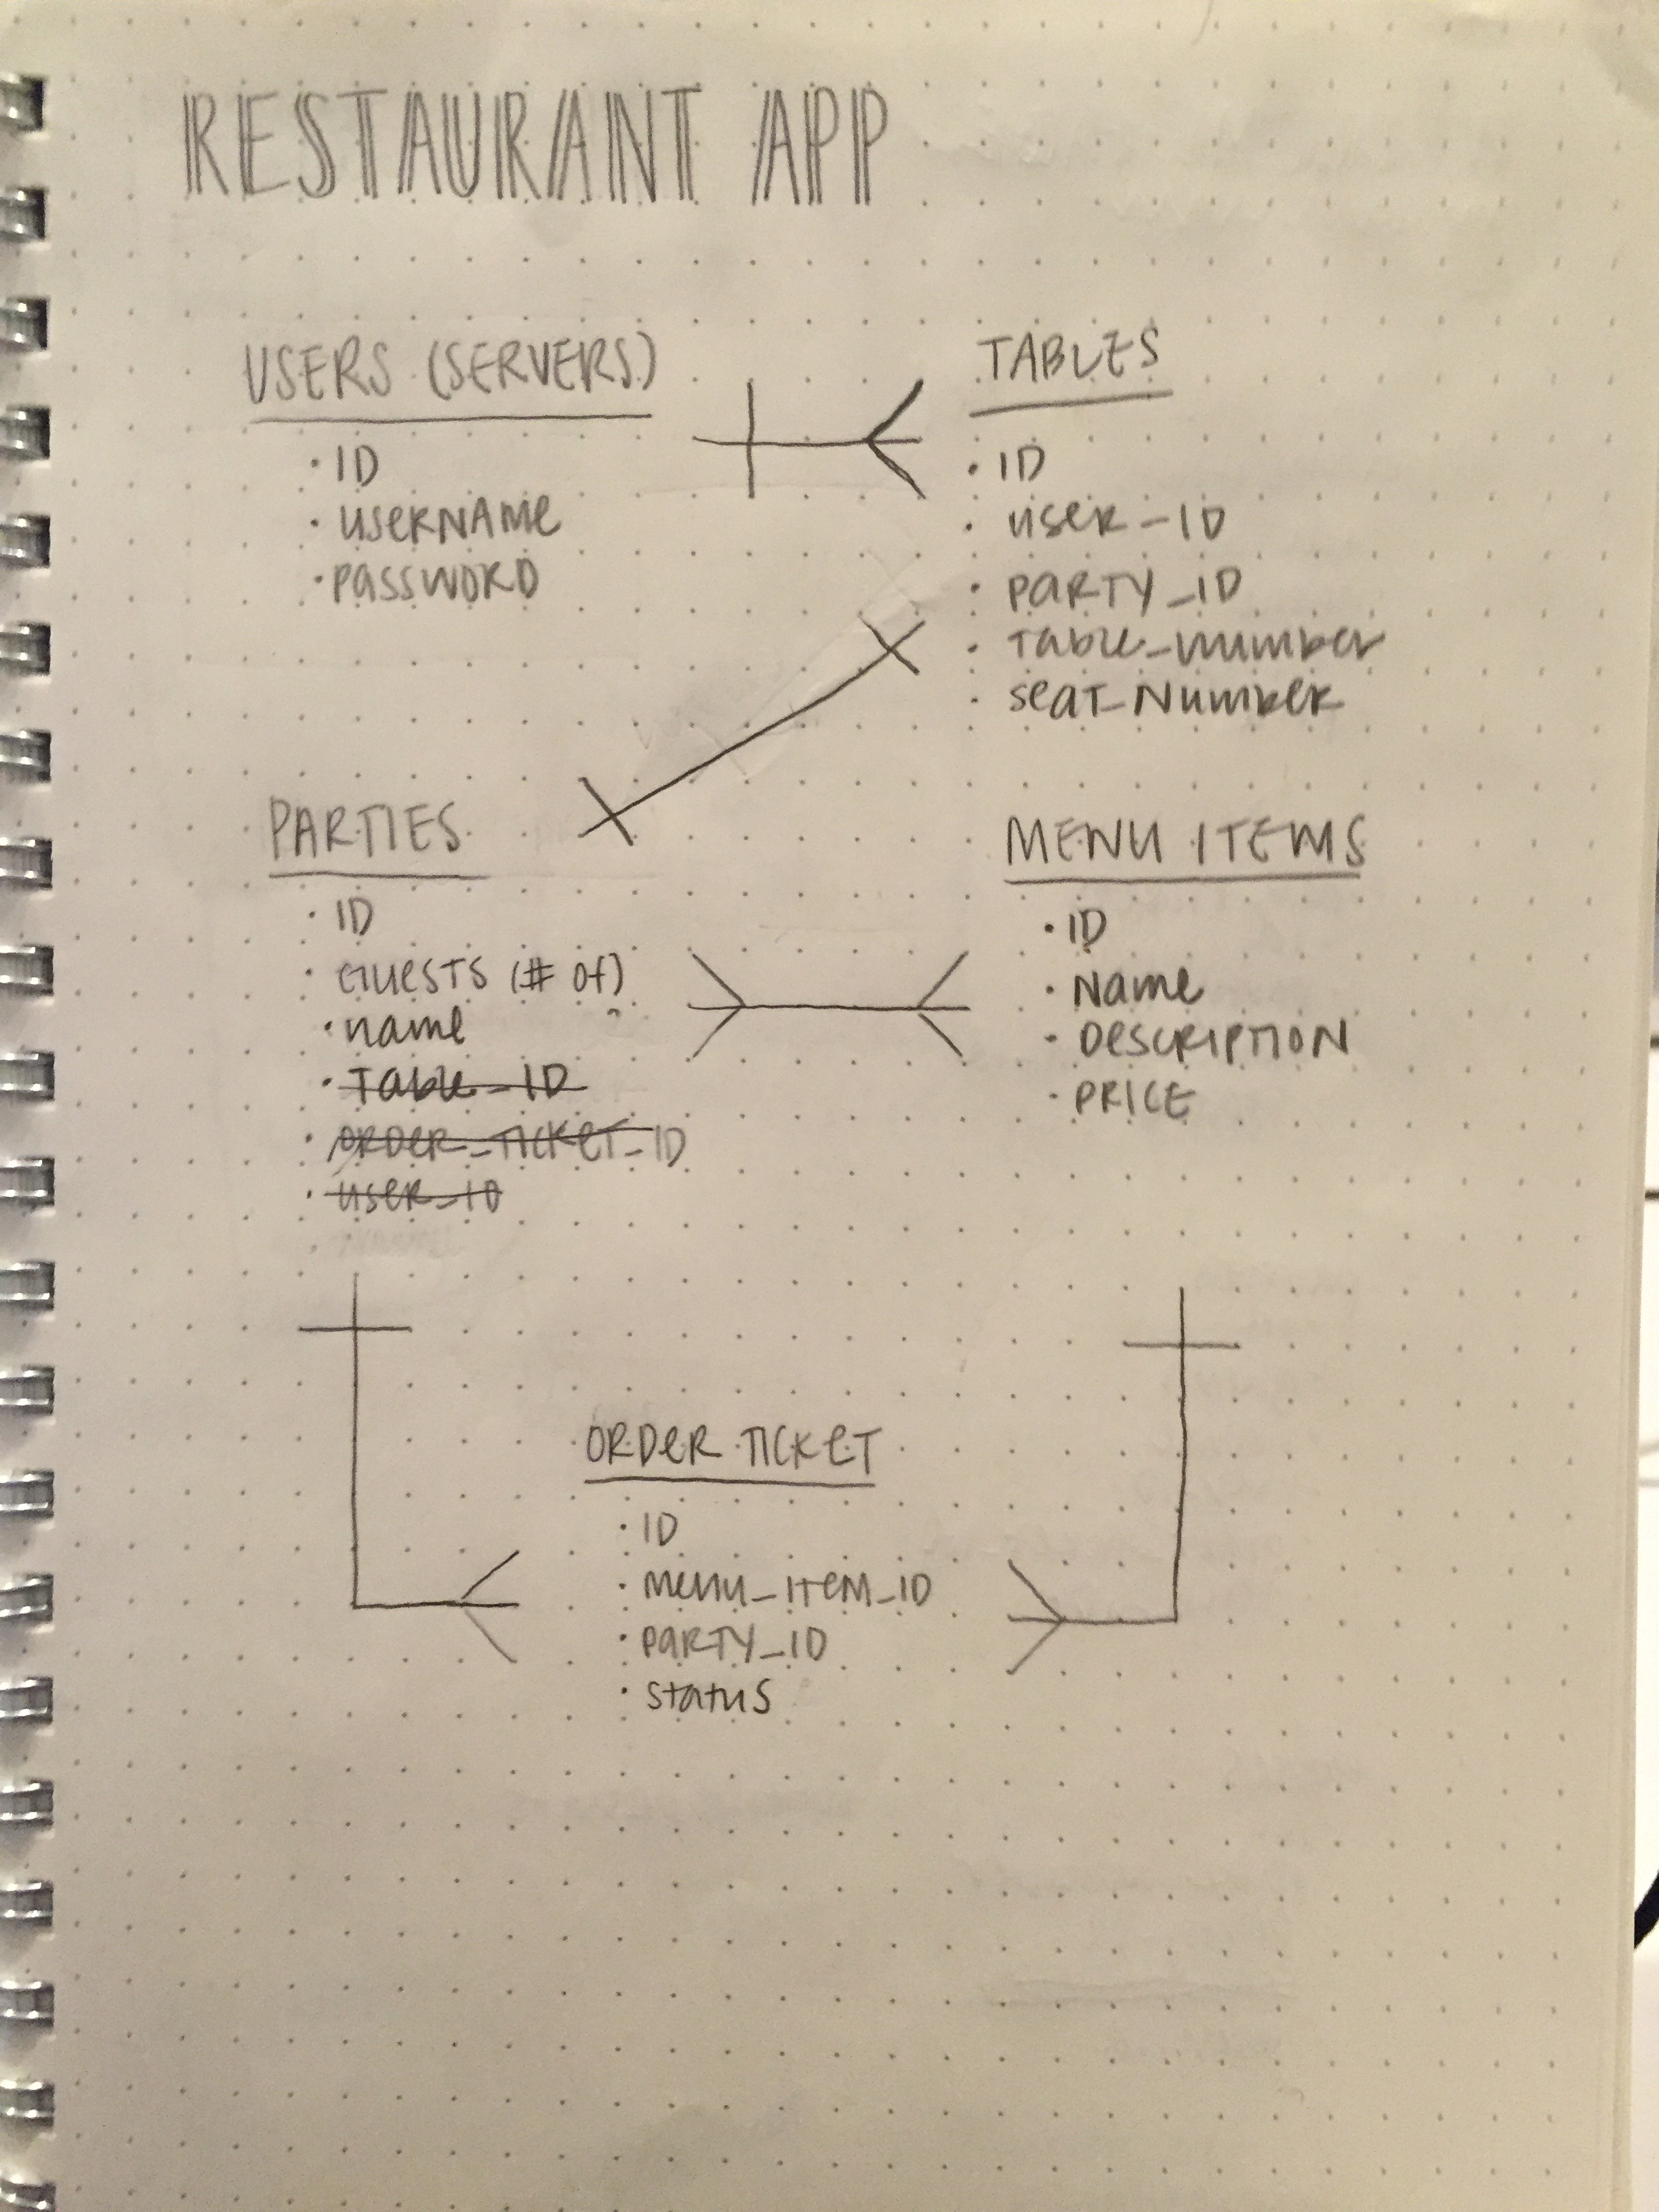 RESTAURANT APP
USERS (SERVERS)
· ID
· USERNAME
· PASSWORD
TABLES
· ID
· USER_ID
· PARTY_ID
· Table_number
· SEAT_NUMBER
PARTIES
· ID
· GUESTS (# of)
· name
· Table_ID
· ORDER_TICKET_ID
· USER_ID
MENU ITEMS
· ID
· Name
· DESCRIPTION
· PRICE
ORDER TICKET
· ID
· MENU_ITEM_ID
· PARTY_ID
· status